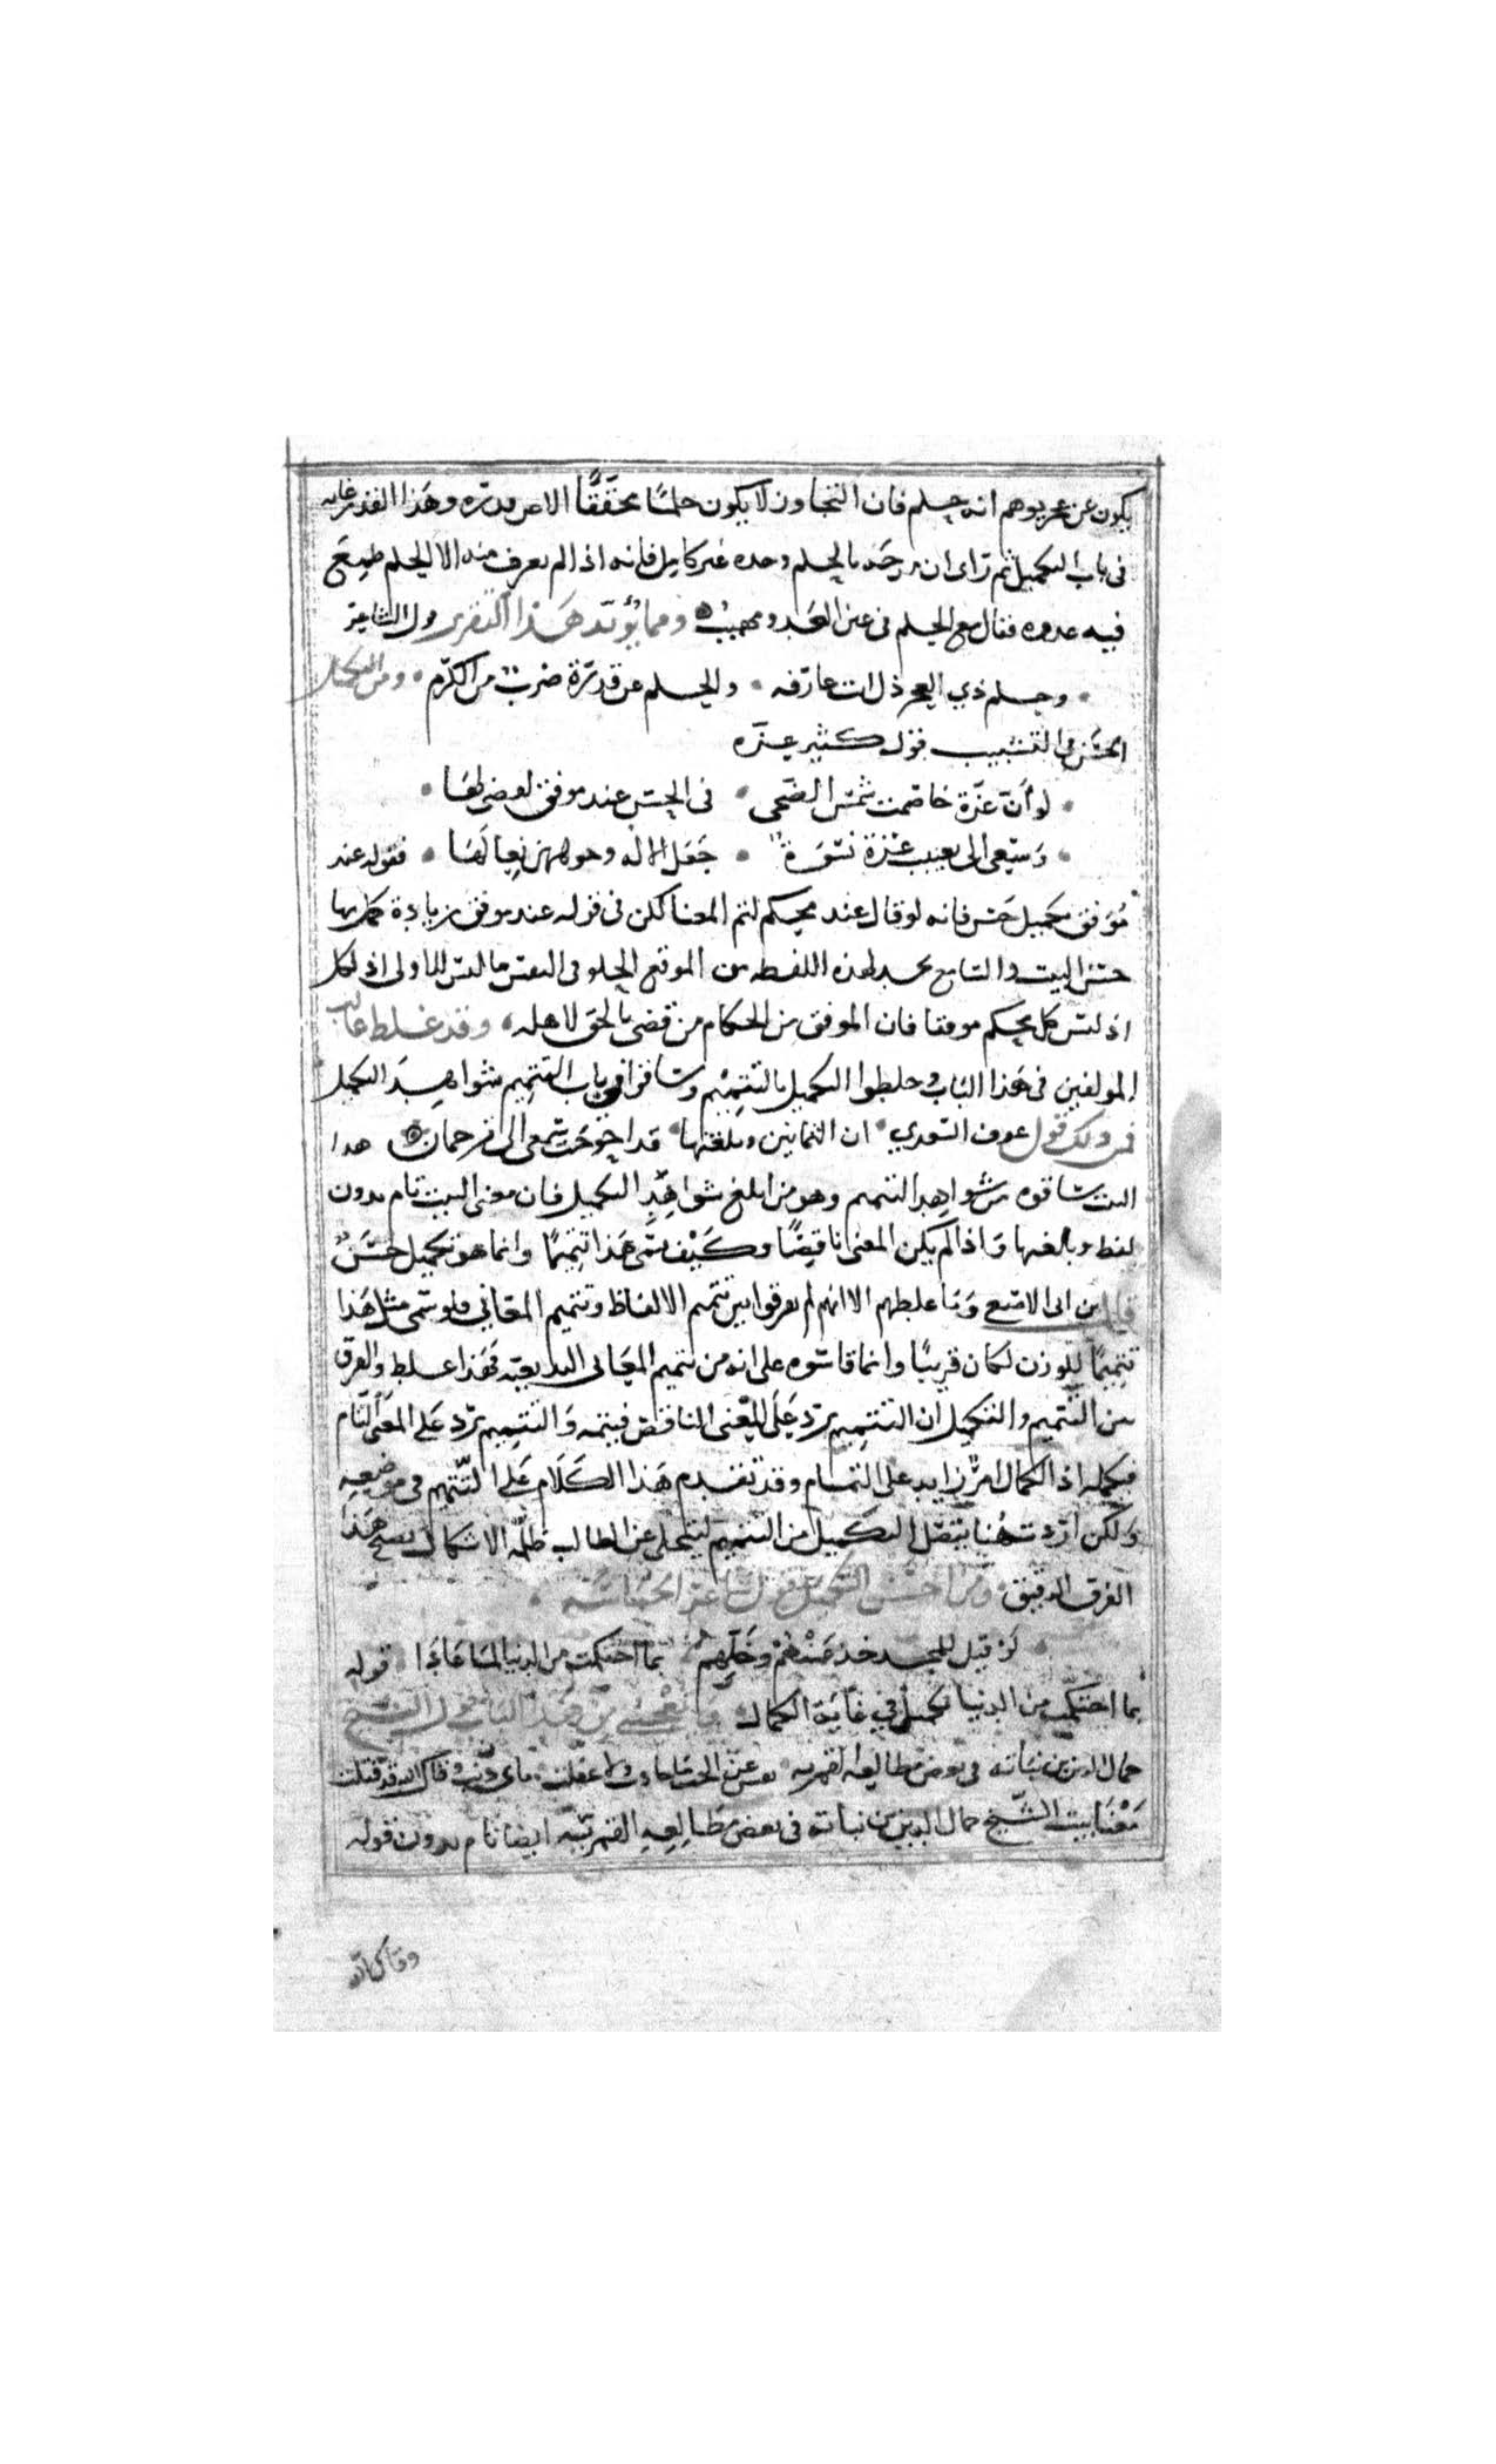 يكون عن عجز يوهم انه حلم فان التجاوز لا يكون حلما محققا الا عن قدرة وهذا القدر غايه
في باب التكميل ثم راى ان مدحه بالحلم وحده غير كامل فانه اذا لم يعرف منه الا الحلم طمع
فيه عدوه فقال مع الحلم في عين العدو مهيب ومما يؤيد هذا التقرير قول الشاعر
وحلم ذي العجز ذل انت عارفه والحلم عن قدرة ضرب من الكرم ومن التكميل
الحسن في التشبيب قول كثير عزه
لو أن عزة خاصمت شمس الضحى في الحسن عند موفق لقضى لها
وسعى الى بعيب عزة نسوة جعل الاله خدودهن نعالها فقوله عند
موفق تكميل حسن فانه لو قال عند محكم لتم المعنا لكن في قوله عند موفق زيادة كمل بها
حسن البيت والسامع يجد لهذه اللفظه من الموقع الحلو في النفس ما ليس للاولى اذ لكل
اذ ليس كل محكم موفقا فان الموفق من الحكام من قضى بالحق لاهله وقد غلط غالب
المولفين في هذا الباب وخلطوا التكميل بالتتميم وساقوا في باب التتميم شواهد التكميل
فمن ذلك قول عوف السعدي ان الثمانين وبلغتها قد احوجت سمعي الى ترجمان هذا
البيت ساقوه من شواهد التتميم وهو من ابلغ شواهد التكميل فان معنى البيت تام بدون
لفظ وبلغتها واذا لم يكن المعنى ناقصا وكيف يسمى هذا تتميما وانما هو تكميل حسن
قال ابن ابى الاصبع وما غلطهم الا انهم لم يفرقوا بين تتميم الالفاظ وتتميم المعاني فلو سمى مثل هذا
تتميما للوزن لكان قريبا وانما قاسوه على انه من تتميم المعاني البديعيه فهذا غلط والفرق
بين التتميم والتكميل ان التتميم يرد على المعنى الناقص فيتمه والتتميم يرد على المعنى التام
فيكمله اذ الكمال امر زايد على التمام وقد تقدم هذا الكلام على التتميم في موضعه
ولكن اردت هنا بتفصل التكميل من التتميم لينجلي عن الطالب ظلمة الاشكال بصبح هذا
الفرق الدقيق ومن احسن التكميل قول شاعر الحماسه
لو قيل للمجد خذ عنهم وخلهم بما احتكمت من الدنيا لما حادا قوله
بما احتكمت من الدنيا تكميل في غاية الكمال ويعجبني من هذا الباب قول الشيخ
جمال الدين بن نباته في بعض مطالعه القمريه نفس عن الحب ما حادت وما غفلت باي ذنب وقاك الله قد قتلت
معنا بيت الشيخ جمال الدين بن نباته في بعض مطالعه القمريه ايضا تام بدون قوله
وقاك الله